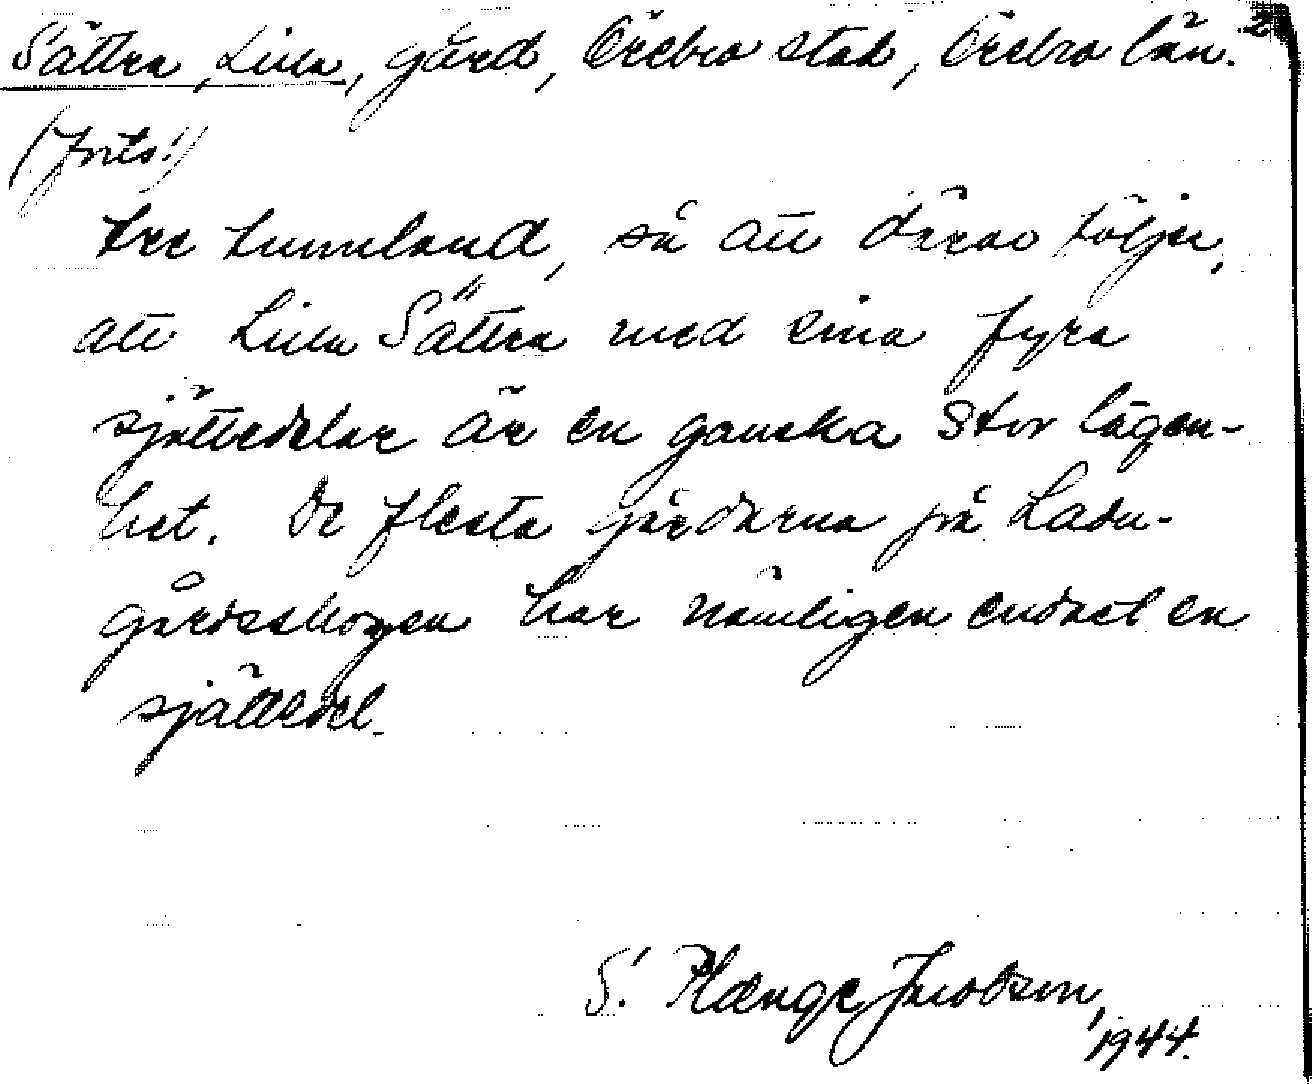 Sättra, Lilla, gård, Örebro stad, Örebro län. 2
(forts.)
tre tunnland, så att därav följer,
att Lilla Sättra med sina fyra
sjättedelar är en ganska stor lägen-
het. De flesta gårdarna på Ladu-
gårdsskogen har nämligen endast en
sjättedel.
S. Plænge Jacobson,
1944.